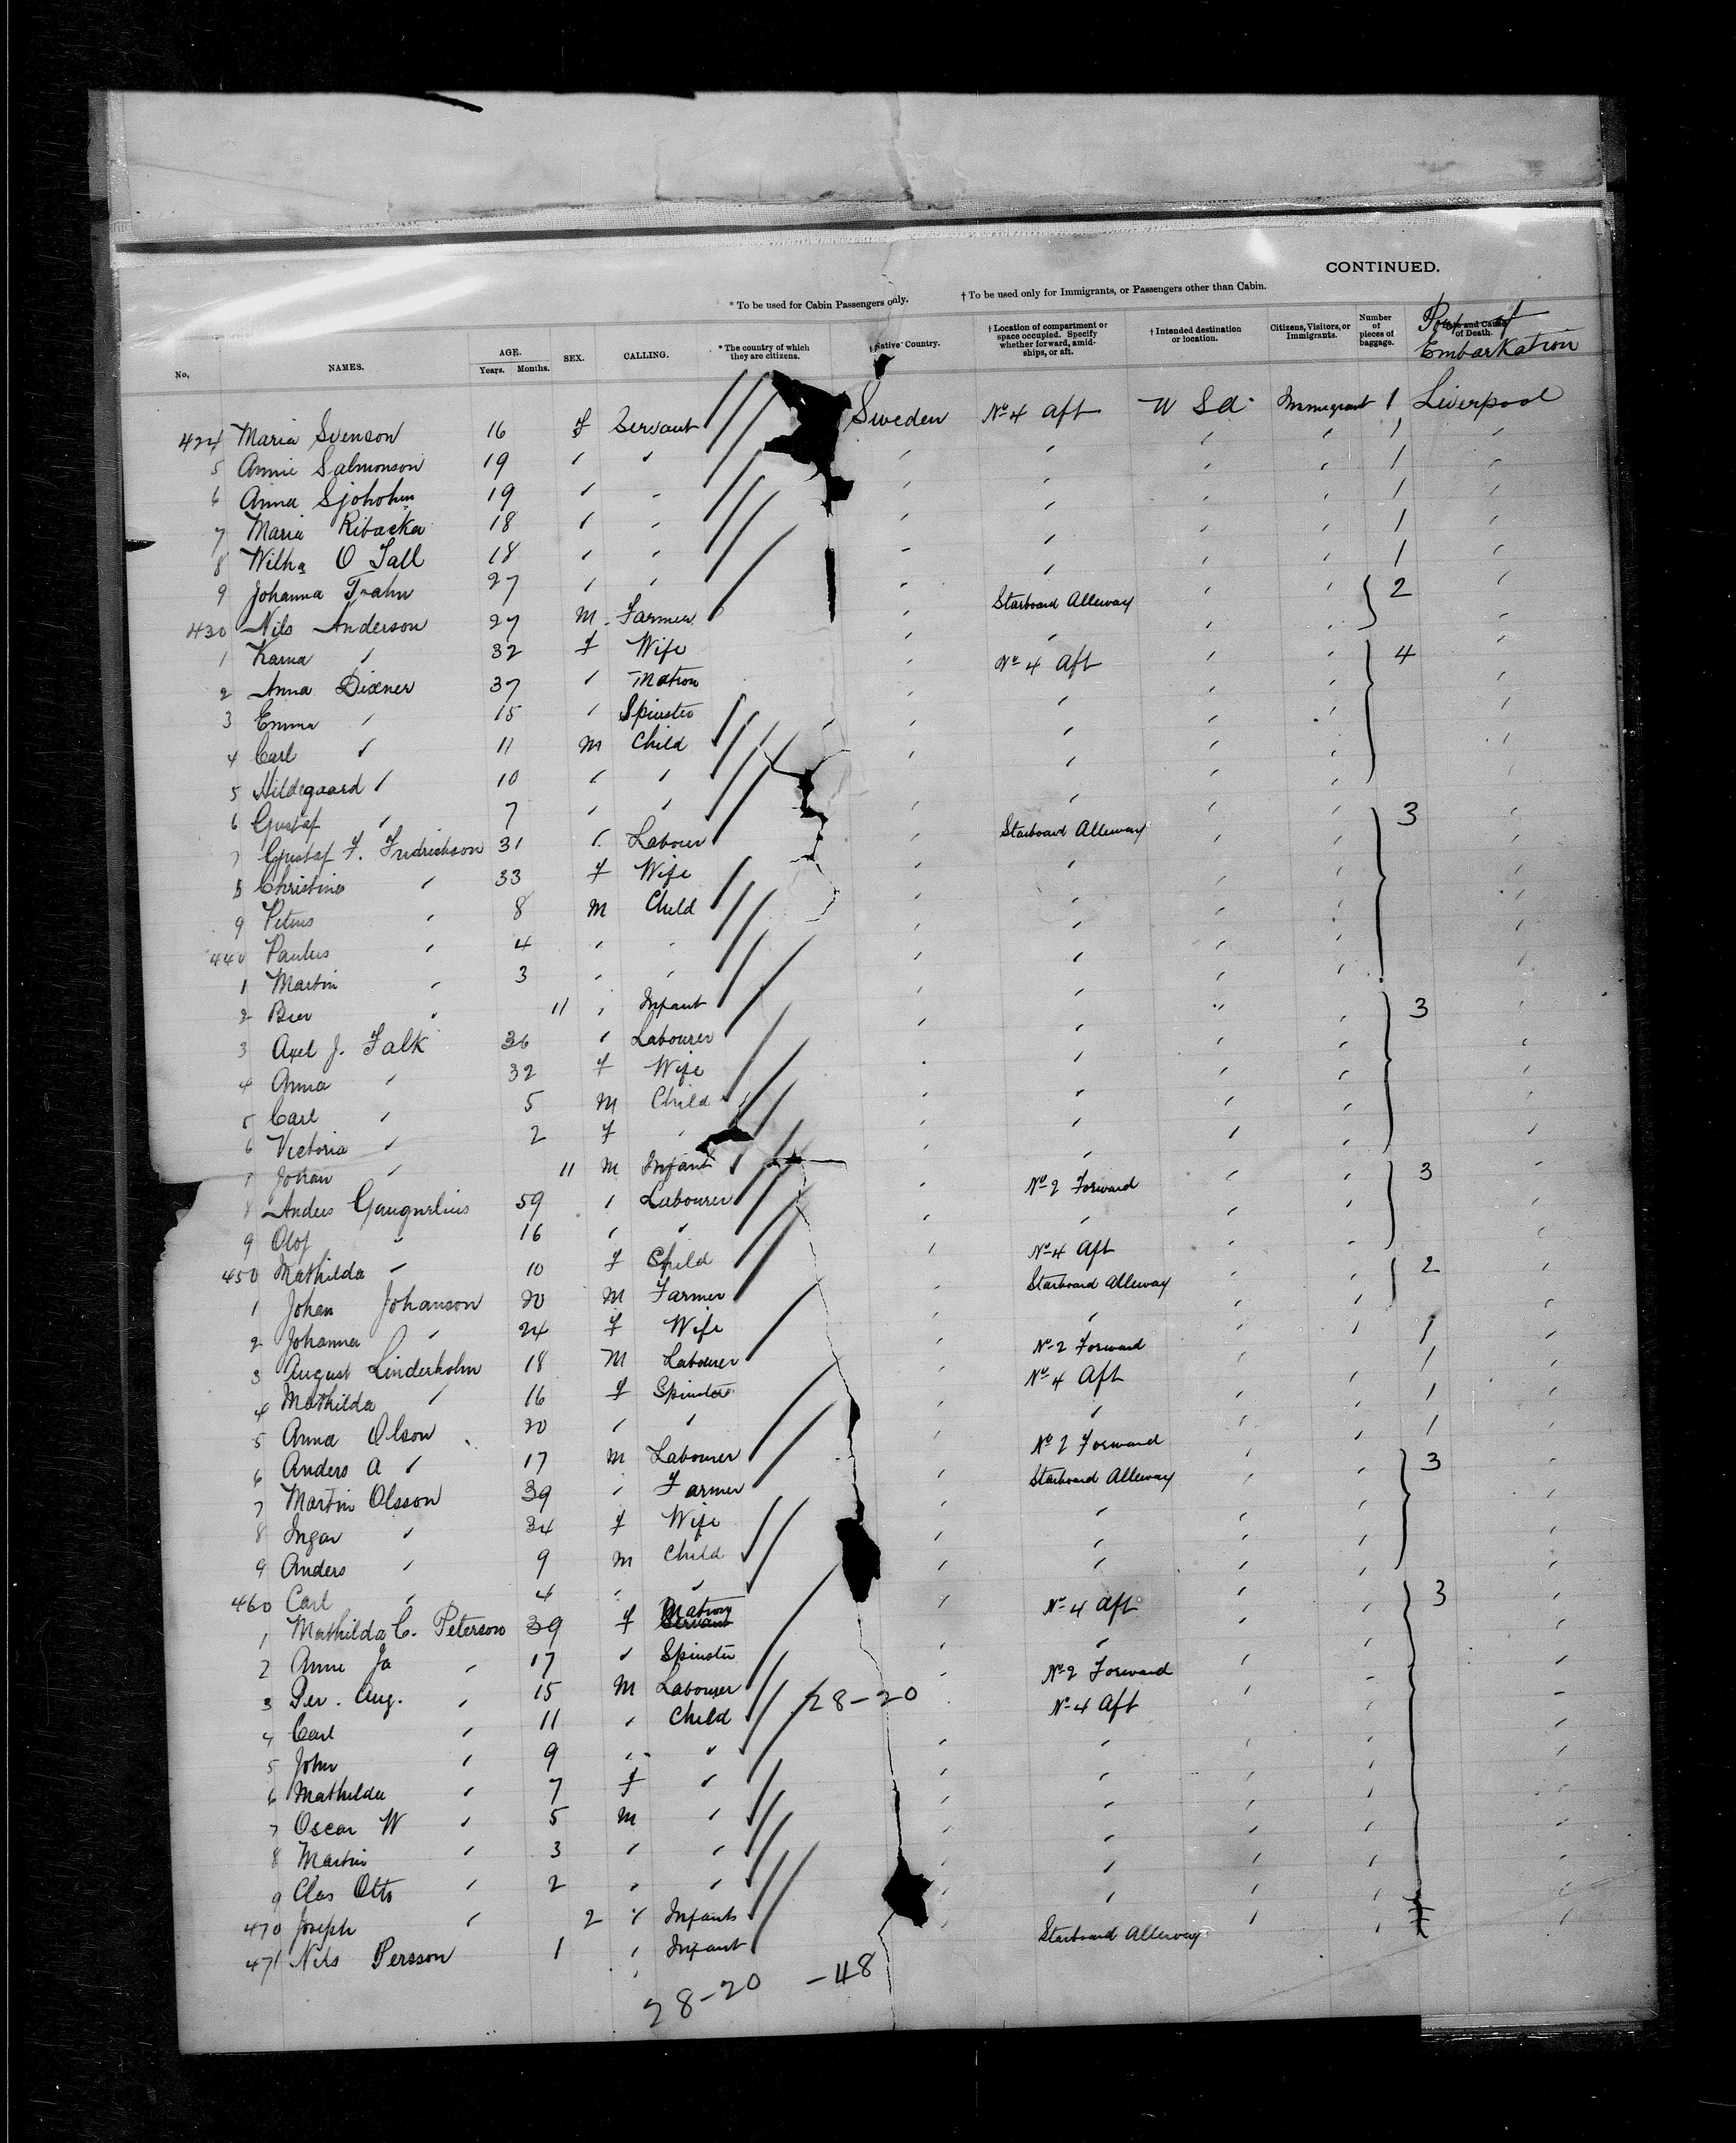 CONTINUED.
* To be used for Cabin Passengers only. † To be used only for Immigrants, or Passengers other than Cabin.
No. NAMES. AGE. Years. Months. SEX. CALLING. * The country of which they are citizens. † Native Country. † Location of compartment or space occupied. Specify whether forward, amidships, or aft. † Intended destination or location. Citizens, Visitors, or Immigrants. Number of pieces of baggage. Port of Embarkation
424 Maria Svenson 16 f Servant Sweden No 4 aft U Sa Immigrant 1 Liverpool
5 Annie Salmonson 19 " " " " " " 1 "
6 Anna Sjoholm 19 " " " " " " 1 "
7 Maria Ribacka 18 " " " " " " 1 "
8 Wilha O Tall 18 " " " " " " 1 "
9 Johanna Trahn 27 " " " " " " 1 "
430 Nils Anderson 27 M Farmer " Starboard Alleway " " 2 "
1 Karna " 32 f Wife " " " " "
2 Anna Dixner 37 " Matron " No 4 Aft " " 4 "
3 Emma " 15 " Spinster " " " " "
4 Carl " 11 M Child " " " " "
5 Hildegaard " 10 " " " " " " "
6 Gustaf " 7 " " " " " " "
7 Gustaf F. Fredrickson 31 " Labour " Starboard Alleway " " 3 "
8 Christina " 33 f Wife " " " " "
9 Petrus " 8 M Child " " " " "
440 Paulus " 4 " " " " " " "
1 Martin " 3 " " " " " " "
2 " 11 " Infant " " " " "
3 Axel J. Falk 36 " Labourer " " " " 3 "
4 Anna " 32 f Wife " " " " "
5 Carl " 5 M Child " " " " "
6 Victoria " 2 f " " " " " "
7 Johan " 11 M Infant " " " " "
8 Anders 59 " Labourer " No 2 Forward " " 3 "
9 Olof " 16 " " " " " " "
450 Mathilda " 10 f Child " No 4 Aft " " "
1 Johan Johanson 20 M Farmer " Starboard Alleway " " 2 "
2 Johanna " 24 f Wife " " " " "
3 August Linderholm 18 M Labourer " No 2 Forward " " 1 "
4 Mathilda " 16 f Spinster " No 4 Aft " " 1 "
5 Anna Olson 20 " " " " " " 1 "
6 Anders A " 17 M Labourer " No 2 Forward " " 1 "
7 Martin Olsson 39 " Farmer " Starboard Alleway " " 3 "
8 Ingar " 34 f Wife " " " " "
9 Anders " 9 M Child " " " " "
460 Carl " 4 " " " " " " "
1 Mathilda C. Peterson 39 f Matron Servant " No 4 Aft " " 3 "
2 Anne " 17 " Spinster " " " " "
3 Per. Aug. " 15 M Labourer 28-20 " No 2 Forward " " "
4 Carl " 11 " Child No 4 Aft " " "
5 John " 9 " " " " " " "
6 Mathilda " 7 f " " " " " "
7 Oscar W " 5 M " " " " " "
8 Martin " 3 " " " " " " "
9 Clas Otto " 2 " " " " " " "
470 Joseph " 2 " Infants " " " " "
471 Nils Persson 1 " Infant " Starboard Alleway " " "
28-20 -48